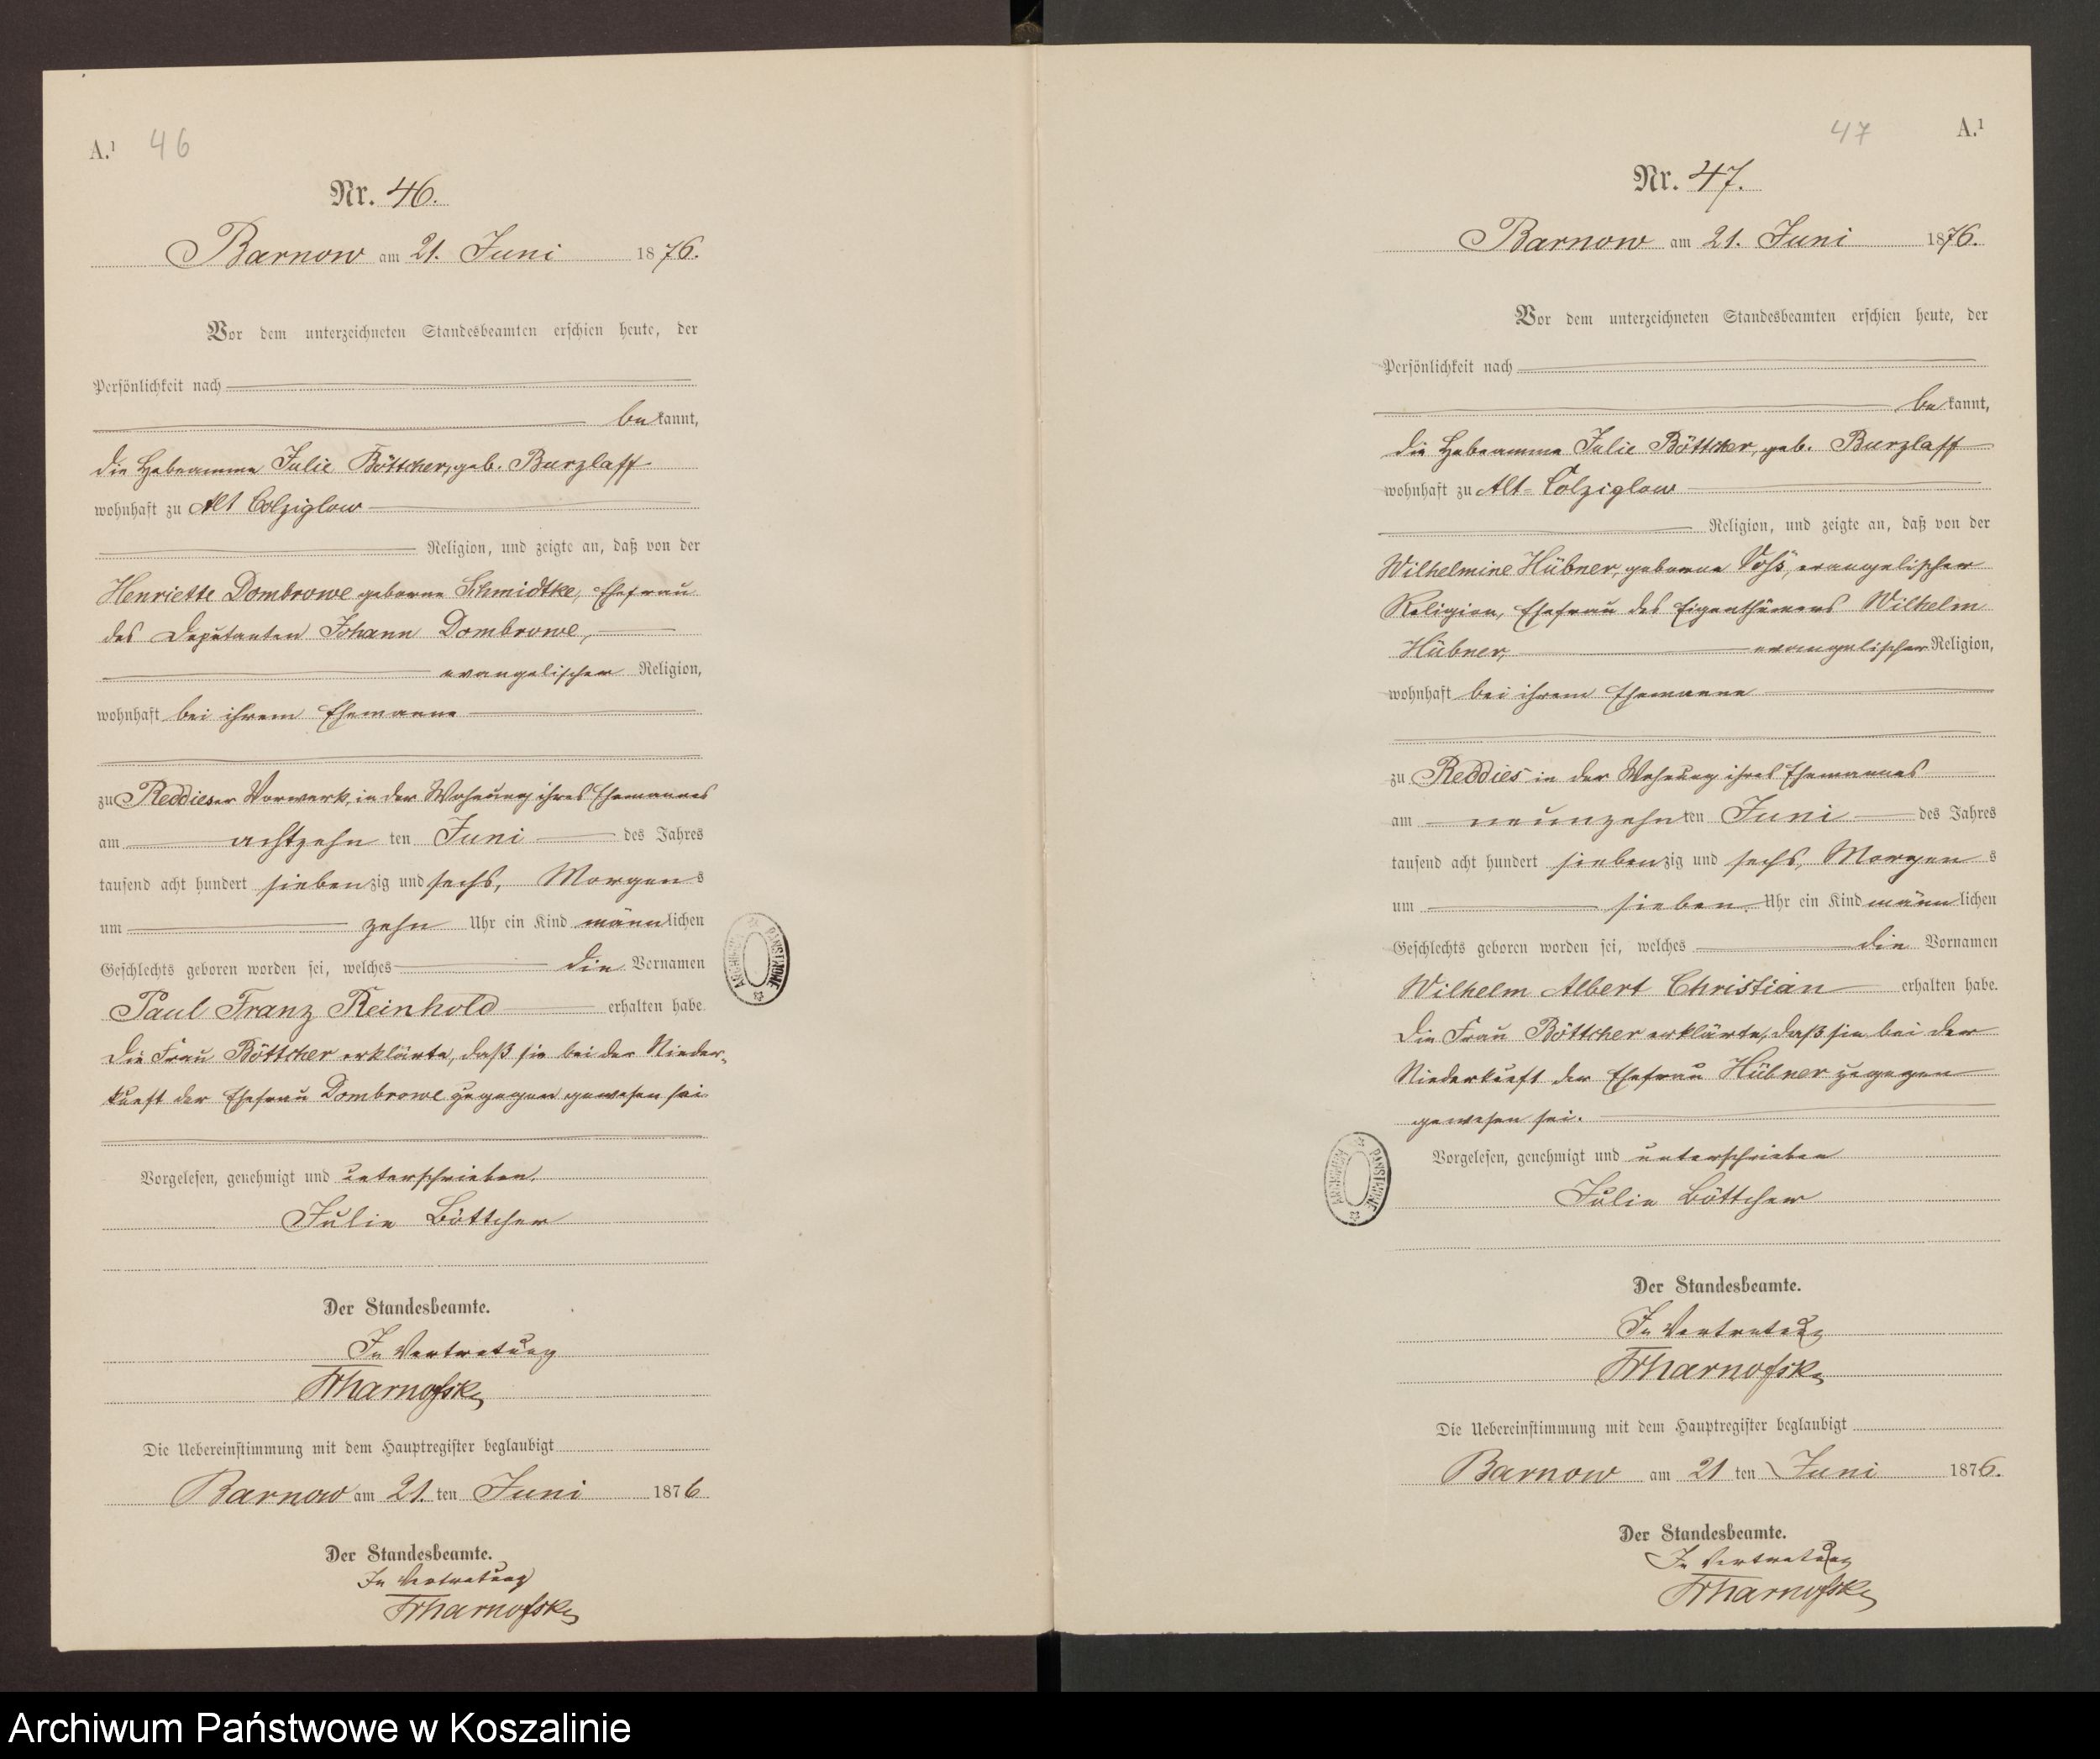 A.¹ 46
Nr. 46.
Barnow am 21. Juni 1876.
Vor dem unterzeichneten Standesbeamten erschien heute, der
Persönlichkeit nach
bekannt,
die Hebeamme Julie Böttcher, geb. Burzlaff
wohnhaft zu Alt Colziglow
Religion, und zeigte an, daß von der
Henriette Dombrowe geborne Schmidtke, Ehefrau
des Deputanten Johann Dombrowe,
evangelischer Religion,
wohnhaft bei ihrem Ehemanne
zu Reddieser Vorwerk, in der Wohnung ihres Ehemannes
am achtzehn ten Juni des Jahres
tausend acht hundert siebenzig und sechs, Morgens
um zehn Uhr ein Kind männlichen
Geschlechts geboren worden sei, welches die Vornamen
Paul Franz Reinhold erhalten habe.
Die Frau Böttcher erklärte, daß sie bei der Nieder-
kunft der Ehefrau Dombrowe zugegen gewesen sei.
Vorgelesen, genehmigt und unterschrieben.
Julie Böttcher
Der Standesbeamte.
In Vertretung
Die Uebereinstimmung mit dem Hauptregister beglaubigt
Barnow am 21. ten Juni 1876
Der Standesbeamte.
In Vertretung
ARCHIWUM PAŃSTWOWE
47 A.¹
Nr. 47.
Barnow am 21. Juni 1876.
Vor dem unterzeichneten Standesbeamten erschien heute, der
Persönlichkeit nach
bekannt,
die Hebeamme Julie Böttcher, geb. Burzlaff
wohnhaft zu Alt-Colziglow
Religion, und zeigte an, daß von der
Wilhelmine Hübner, geborne Voß, evangelischer
Religion, Ehefrau des Eigenthümers Wilhelm
Hübner, evangelischer Religion,
wohnhaft bei ihrem Ehemanne
zu Reddies in der Wohnung ihres Ehemannes
am neunzehnten Juni des Jahres
tausend acht hundert siebenzig und sechs, Morgens
um sieben Uhr ein Kind männlichen
Geschlechts geboren worden sei, welches die Vornamen
Wilhelm Albert Christian erhalten habe.
Die Frau Böttcher erklärte, daß sie bei der
Niederkunft der Ehefrau Hübner zugegen
gewesen sei.
Vorgelesen, genehmigt und unterschrieben
Julie Böttcher
Der Standesbeamte.
In Vertretung
Die Uebereinstimmung mit dem Hauptregister beglaubigt
Barnow am 21 ten Juni 1876.
Der Standesbeamte.
In Vertretung
ARCHIWUM PAŃSTWOWE
Archiwum Państwowe w Koszalinie